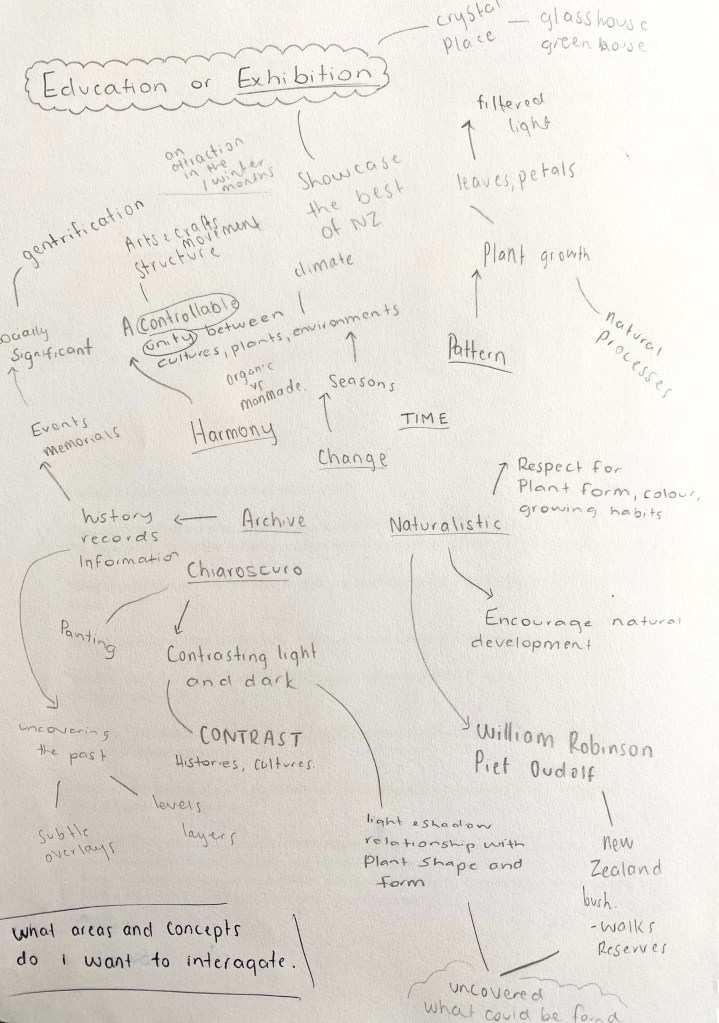 crystal
Place
glasshouse
greenhouse
Education or Exhibition
on
attraction
in the
winter
months
Showcase
the best
of NZ
climate
filtered
light
leaves, petals
Plant growth
natural
Processes
Pattern
gentrification
Arts & crafts
movement
Structure
A Controllable
unity between
cultures, plants, environments
ocially
Significant
organic
vs
manmade.
Seasons
Events
memorials
Harmony
Change
TIME
history
records
Information
Archive
Naturalistic
Respect for
Plant form, colour,
growing habits
Chiaroscuro
Panting
Contrasting light
and dark
Encourage natural
development
CONTRAST
Histories, cultures.
uncovering
the past
subtle
overlays
levels
layers
William Robinson
Piet Oudolf
light & shadow
relationship with
Plant Shape and
form
new
Zealand
bush.
-walks
Reserves
What areas and concepts
do i want to interagate.
uncovered
what could be found